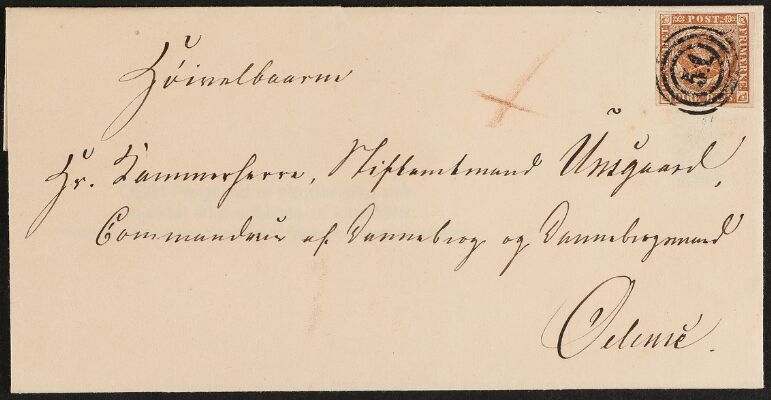 Höivelbaarne
Hr. Kammerherre, Stiftamtmand Unsgaard,
Commandeur af Dannebrog og Dannebrogsmand
Odense.
POST
FRIMÆRKE
51